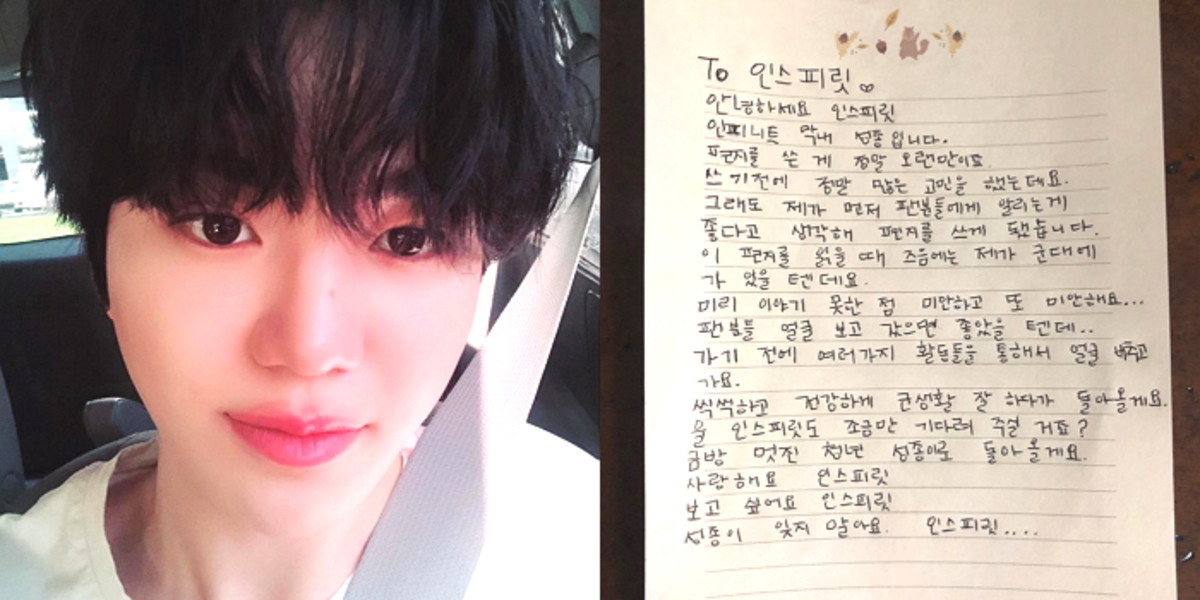 To 인스피릿
안녕하세요 인스피릿
인피니트 막내 성종입니다.
편지를 쓴 게 정말 오랜만이죠.
쓰기전에 정말 많은 고민을 했는데요.
그래도 제가 먼저 팬분들에게 알리는게
좋다고 생각해 편지를 쓰게 됐습니다.
이 편지를 읽을 때 즈음에는 제가 군대에
가 있을 텐데요.
미리 이야기 못한 점 미안하고 또 미안해요...
팬분들 얼굴 보고 갔으면 좋았을 텐데..
가기 전에 여러가지 활동들을 통해서 얼굴 비추고
가요.
씩씩하고 건강하게 군생활 잘 하다가 돌아올게요.
울 인스피릿도 조금만 기다려 주실 거죠?
금방 멋진 청년 성종이로 돌아올게요.
사랑해요 인스피릿
보고 싶어요 인스피릿
성종이 잊지 말아요. 인스피릿....